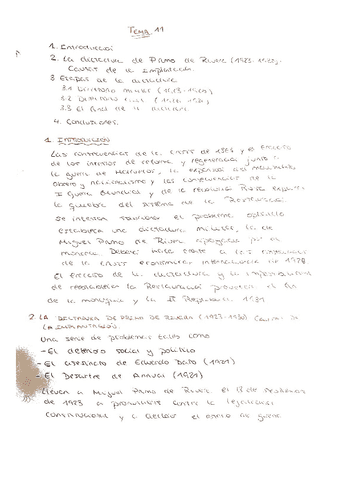 Tema 11
1. Introducción
2. La dictadura de Primo de Rivera (1923-1930).
Causas de la implantación.
3. Etapas de la dictadura
3.1 Directorio militar (1923-1925)
3.2 Directorio civil (1925-1930)
3.3 El final de la dictadura
4. Conclusiones.
1. INTRODUCCIÓN
Las consecuencias de la crisis de 1898 y el fracaso
de los intentos de reforma y regeneración, junto a
la guerra de Marruecos, la expansión del movimiento
obrero y nacionalismo y las consecuencias de la
I Guerra Mundial y de la revolución Rusa
la quiebra del sistema de la Restauración
Se intenta solucionar el problema,
estableciendo una dictadura militar, la de
Miguel Primo de Rivera apoyada por el
monarca. Deberá hacer frente a las consecuencias
de la crisis económica internacional de 1929
El fracaso de la dictadura y la
de restablecer la Restauración provocan el fin
de la monarquía y la II República. 1931
2. LA DICTADURA DE PRIMO DE RIVERA (1923-1930) Causas de
LA IMPLANTACIÓN.
Una serie de problemas tales como
- El deterioro social y político
- El asesinato de Eduardo Dato (1921)
- El Desastre de Annual (1921)
llevan a Miguel Primo de Rivera el 13 de Septiembre
de 1923 a pronunciarse contra la legalidad
constitucional y a declarar el estado de guerra.